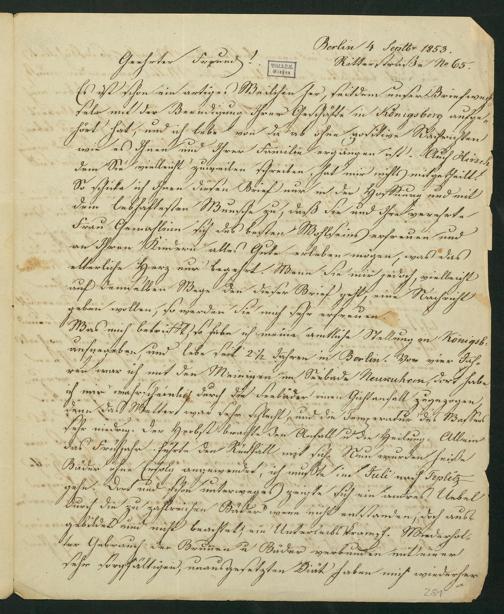 Berlin 4 Septbr 1853.
Ritterstraße No 65.
Geehrter Freund!
Es ist schon ein artiges Weilchen her, seitdem unser Briefwech
sel mit der Beendigung Ihrer Geschäfte in Königsberg aufge
hört hat, und ich lebe von da ab ohne Nachrichten
wie es Ihnen und Ihrer Familie ergangen ist. Auch Hirsch
dem Sie vielleicht zuweilen schreiben, hat mir nichts mitgetheilt.
So schicke ich Ihnen diesen Brief nur in der Hoffnung und mit
dem lebhaftesten Wunsche zu, daß Sie und Ihre verehrte
Frau Gemahlin sich des besten Wohlseins erfreuen und
an Ihren Kindern alles Gute erleben mögen, was das
elterliche Herz nur begehrt. Wenn Sie mir jedoch vielleicht
auf demselben Wege den dieser Brief geht, eine Nachricht
geben wollen, so werden Sie mich sehr erfreuen.
Was mich betrifft, so habe ich meine amtliche Stellung in Königsb.
aufgegeben und lebe seit 2½ Jahren in Berlin. Vor vier Jah
ren war ich mit den Meinigen im Seebade Neukuhren, dort habe
ich mir wahrscheinlich durch die Seebäder einen Gichtanfall zugezogen,
denn das Wetter war sehr schlecht, und die Temperatur des Wassers
sehr niedrig. Der Herbst brachte den Anfall u die Heilung. Allein
das Frühjahr führte den Rückfall mit sich. Nun wurden heiße
Bäder ohne Erfolg angewendet, ich mußte im Juli nach Teplitz
gehn. Dort und schon unterweges zeigte sich ein andres Uebel
durch die zu zahlreichen Bäder wenn nicht entstanden, doch aus
gebildet und nicht beachtet, ein Unterleibskrampf. Wiederhol
ter Gebrauch der Brunnen u Bäder verbunden mit einer
sehr sorgfältigen, unausgesetzten Diät haben mich wiederher